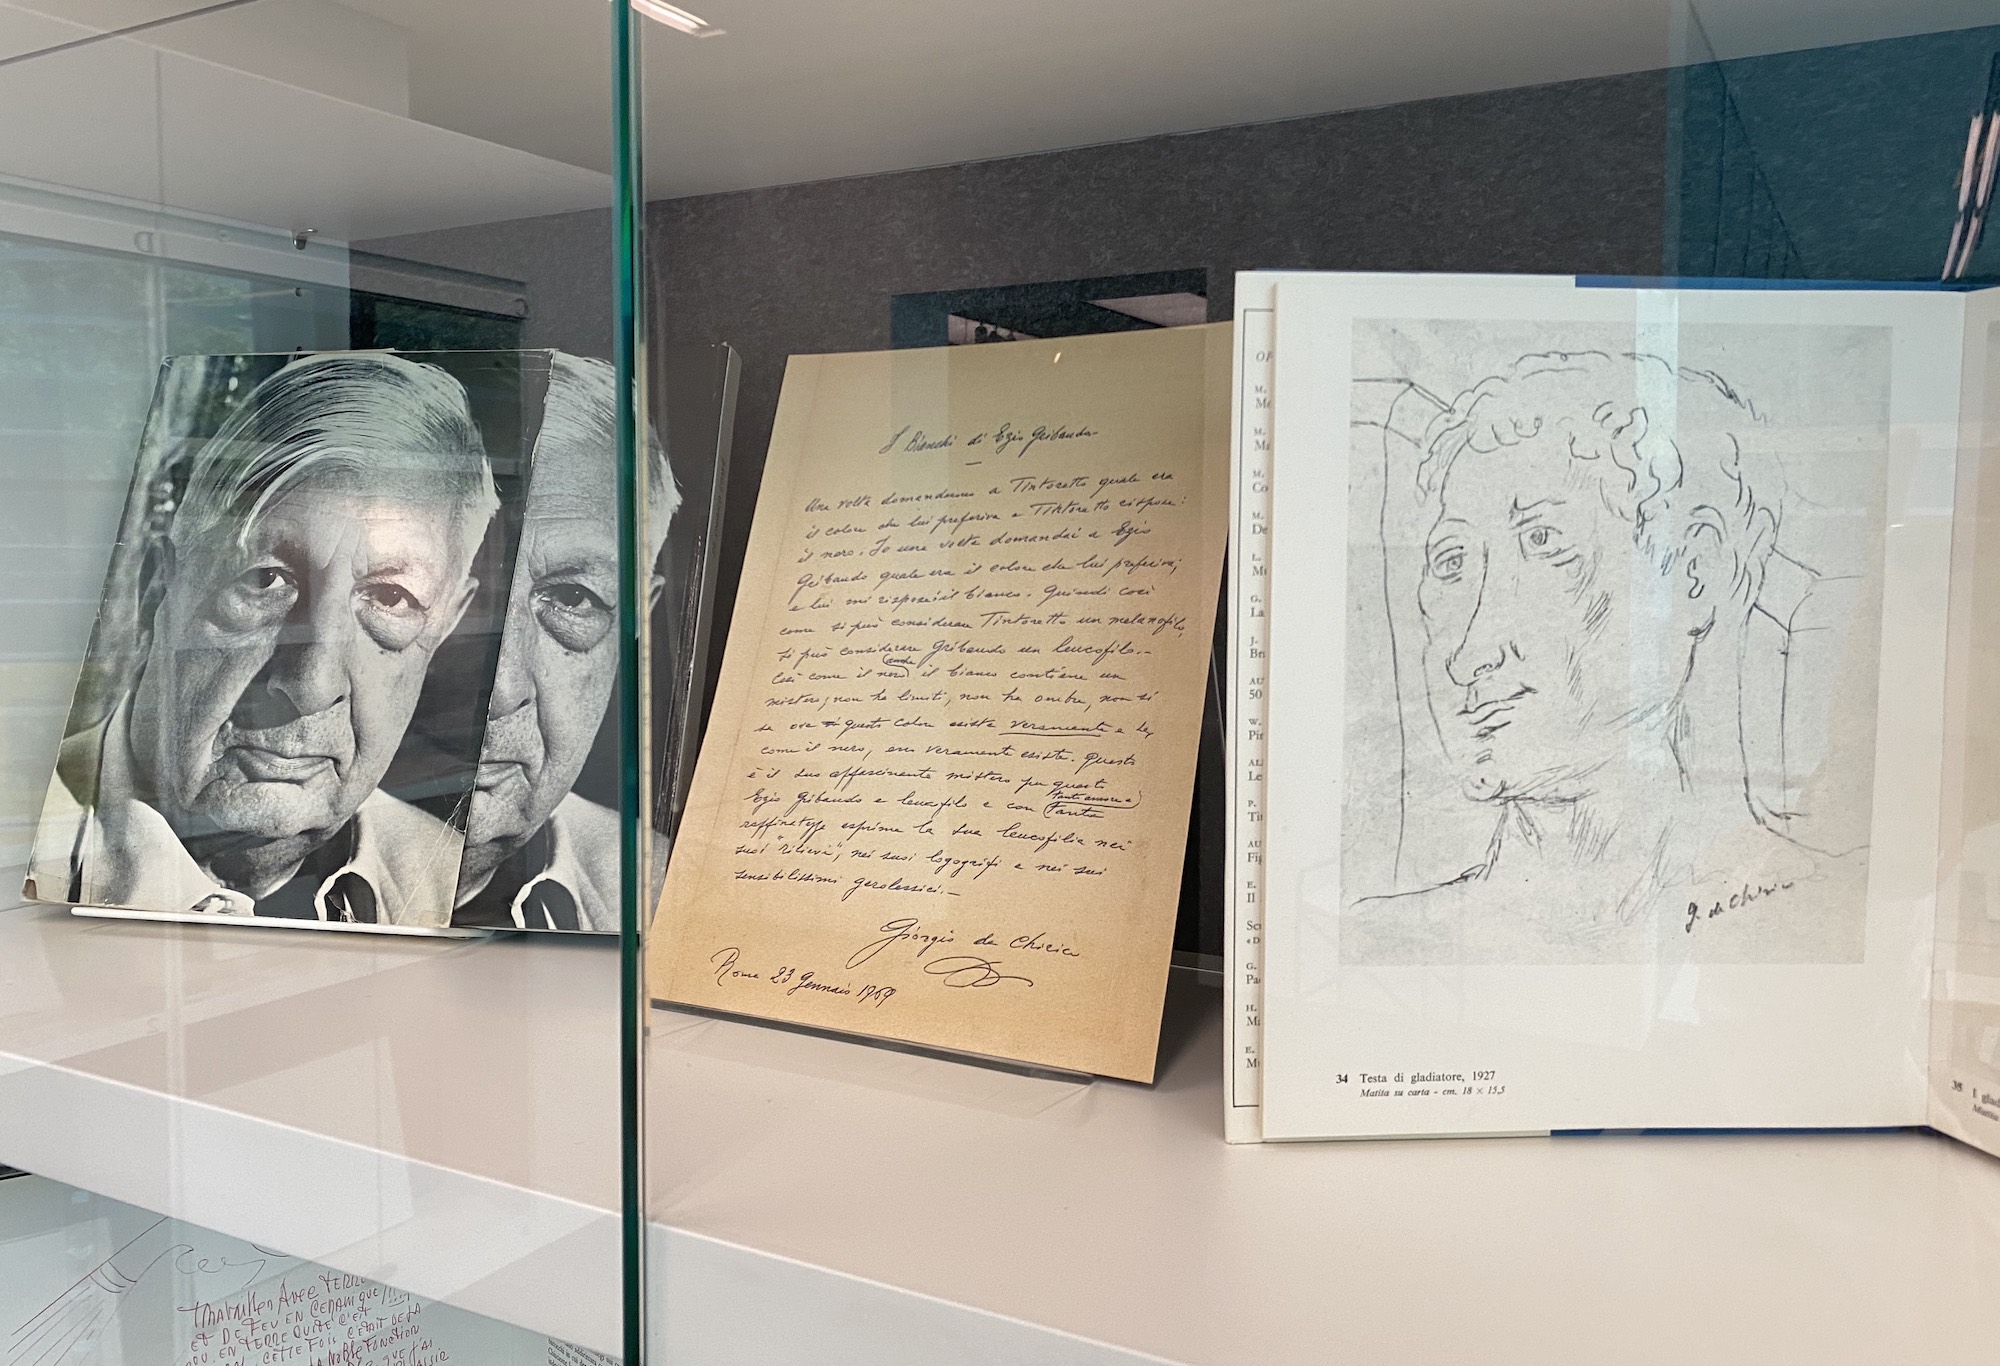 I Bianchi di Ezio Gribaudo
Una volta domandarono a Tintoretto quale era
il colore che lui preferiva e Tintoretto rispose:
il nero. Io una volta domandai a Ezio
Gribaudo quale era il colore che lui preferiva;
e lui mi rispose: il bianco. Quindi così
come si può considerare Tintoretto un melanofilo,
si può considerare Gribaudo un leucofilo.-
Così come il nero (anche) il bianco contiene un
mistero; non ha limiti, non ha ombre, non si
sa ove questo colore esiste veramente e se,
come il nero, esso veramente esiste. Questo
è il suo affascinante mistero per questo
Ezio Gribaudo è leucofilo e con tanto amore e tanta
raffinatezza esprime la sua leucofilia nei
suoi "rilievi", nei suoi logogrifi e nei suoi
sensibilissimi
Giorgio de Chirico
Roma 23 Gennaio 1969
g. de Chirico
34 Testa di gladiatore, 1927
Matita su carta - cm. 18 × 15,5
35 I glad
Matita
OP
M.
M.
M.
Co
M.
De
L.
G.
La
J.
Br
AU
50
W.
Pir
AL
Le
P.
Tit
AU
Fig
E.
Il
Sc
«D
G.
Pa
H.
M
E.
M
travailler Avec terre
et DE FEU EN CERAMIQUE
OU EN TERRE CUITE C'EST
CETTE FOIS C'ETAIT DEJA
LA NOBLE FONCTION
QUE J'AI